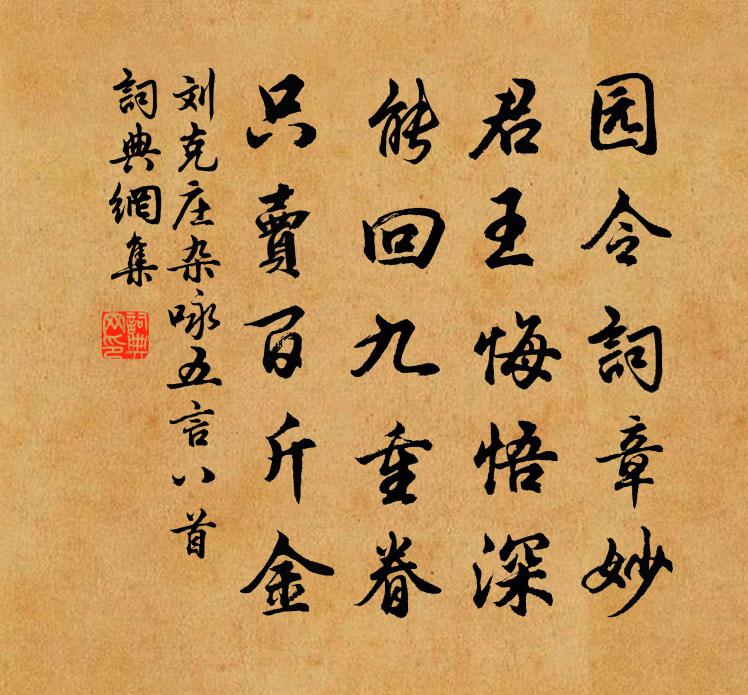 园令詞章妙
君王悔悟深
能回九重眷
只賣百斤金
刘克庄杂咏五言八首
詞典網集
詞典網印